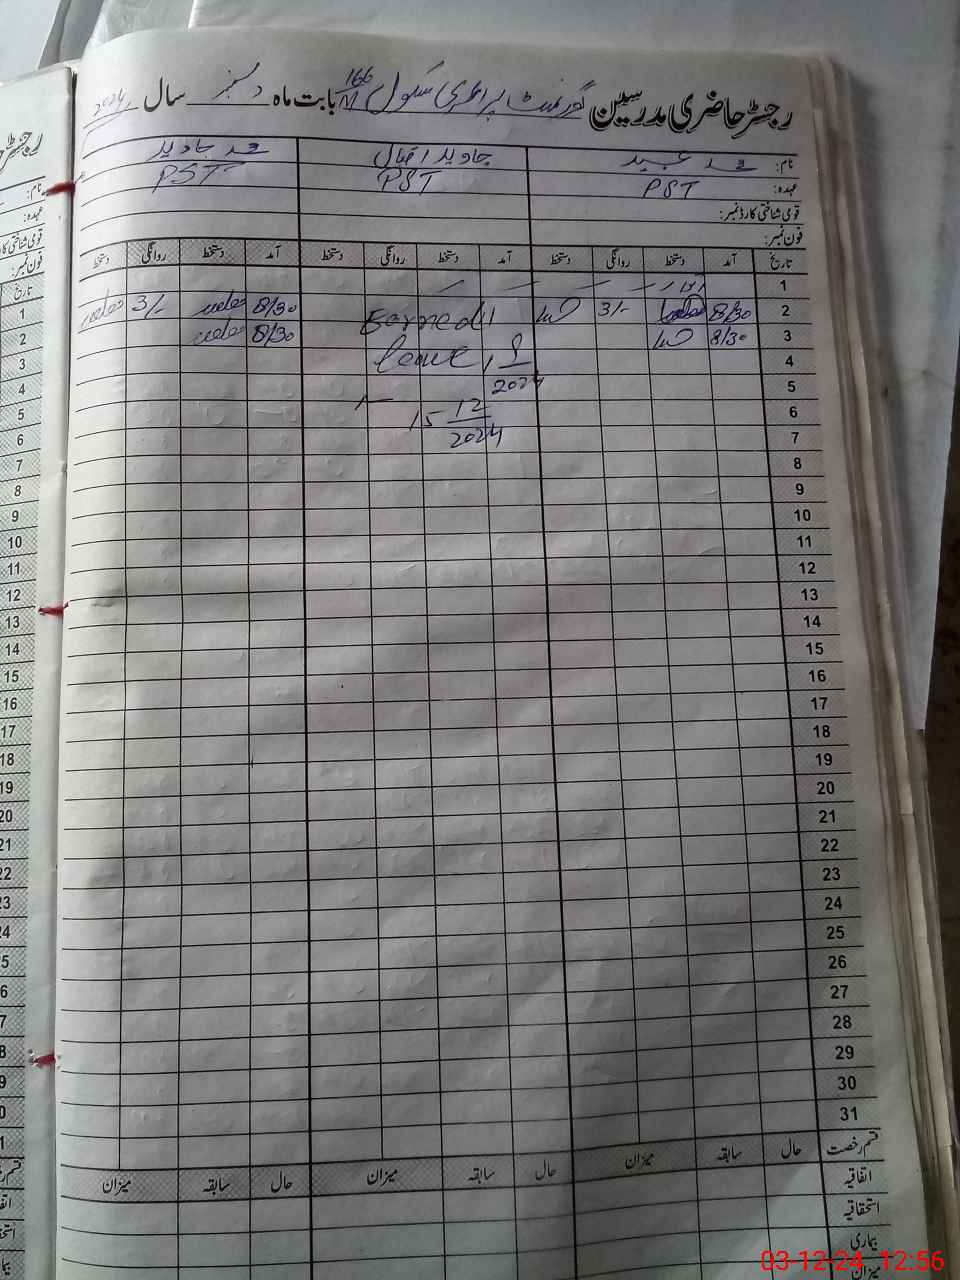 رجسٹر حاضری مدرسین گورنمنٹ پرائمری سکول 166/M بابت ماہ دسمبر سال 2024
نام: محمد عبید جاوید اقبال محمد جاوید
عہدہ: PST PST PST
قومی شناختی کارڈ نمبر:
فون نمبر:
تاریخ آمد دستخط روانگی دستخط آمد دستخط روانگی دستخط آمد دستخط روانگی دستخط
1 اتوار
2 8/30 3/- Earned 11 8/30 3/-
3 8/30 leave, 9 8/30
4 2024
5 15 12
6 2024
7
8
9
10
11
12
13
14
15
16
17
18
19
20
21
22
23
24
25
26
27
28
29
30
31
قسم رخصت حال سابقہ میزان حال سابقہ میزان حال سابقہ میزان
اتفاقیہ
استحقاقیہ
بیماری
میزان
03-12-24 12:56